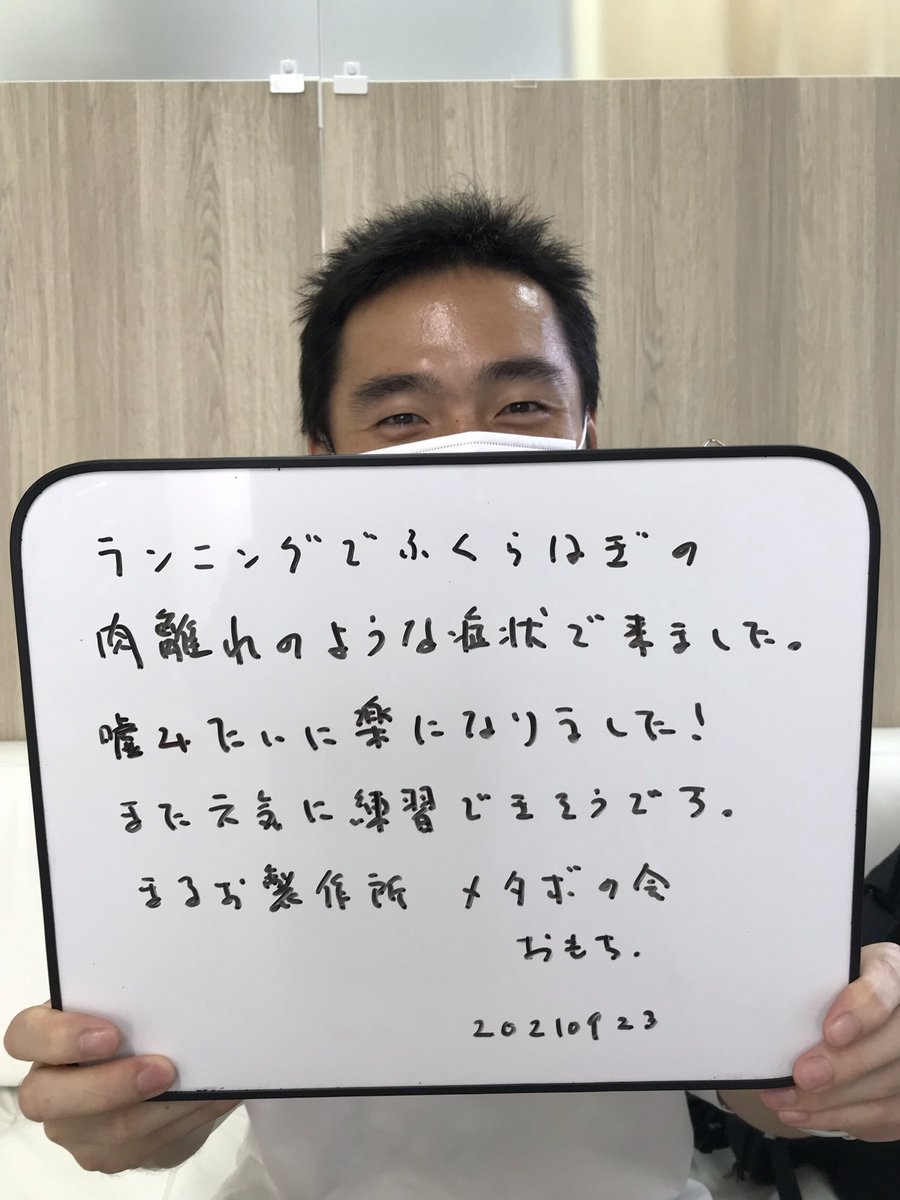 ランニングでふくらはぎの
肉離れのような症状で来ました。
嘘みたいに楽になりました!
また元気に練習できそうです。
まるお製作所 メタボの会
おもち.
20210923